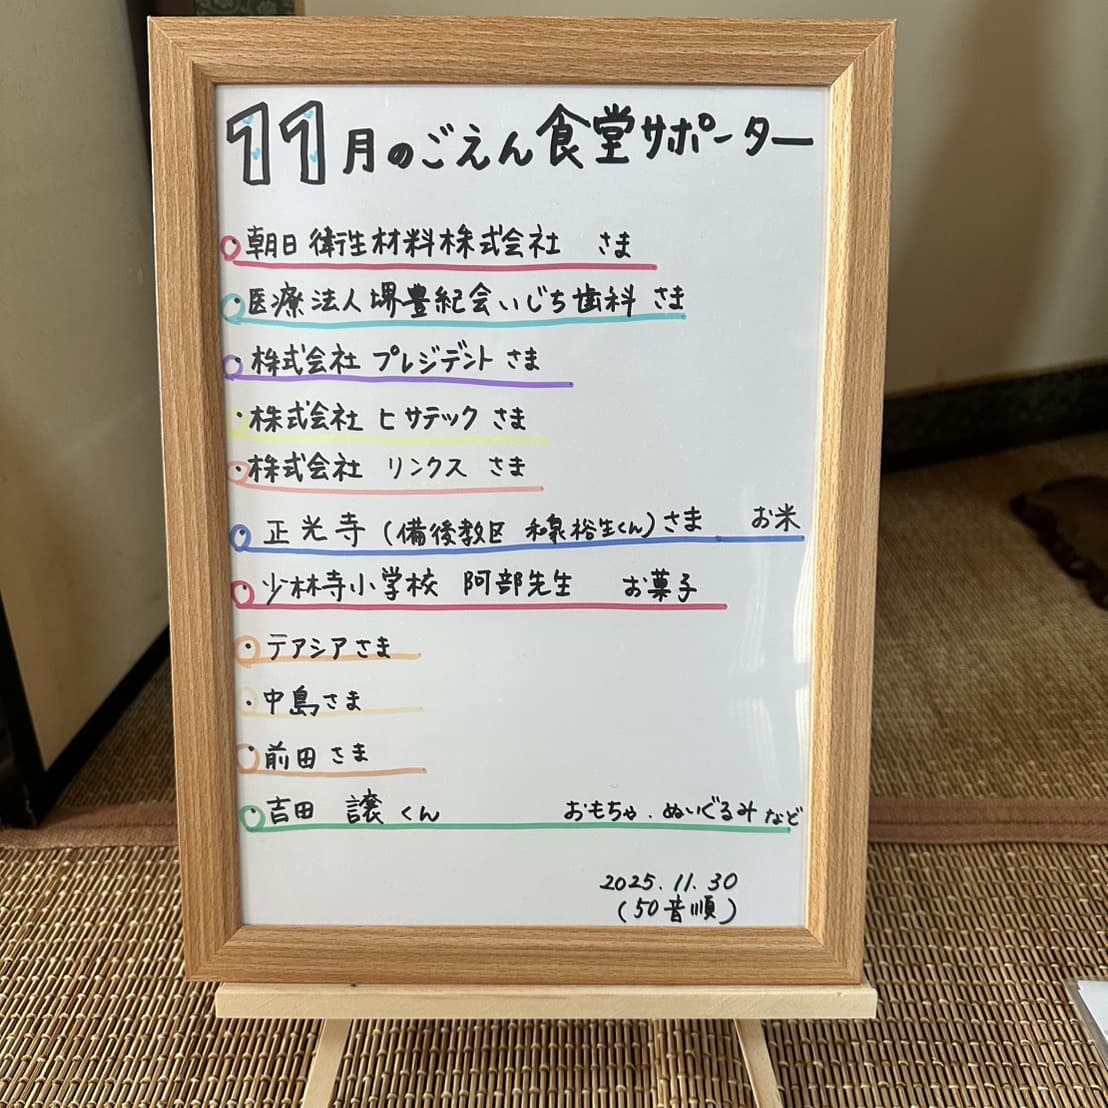 11月のごえん食堂サポーター
朝日衛生材料株式会社 さま
医療法人堺豊紀会いじち歯科 さま
株式会社 プレジデント さま
株式会社 ヒサテック さま
株式会社 リンクス さま
正光寺(備後教区 和泉裕生くん)さま お米
少林寺小学校 阿部先生 お菓子
テアシアさま
中島さま
前田さま
吉田 譲くん おもちゃ.ぬいぐるみなど
2025.11.30
(50音順)